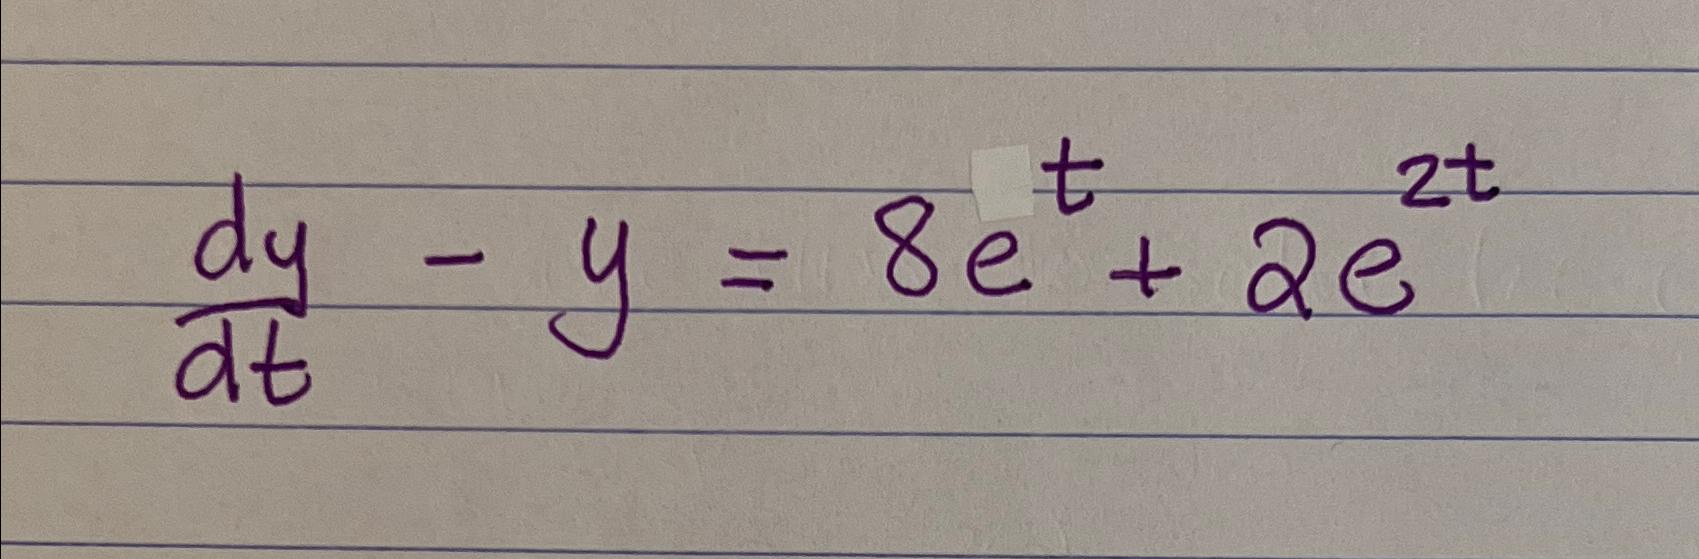 dy/dt - y = 8e^t + 2e^2t